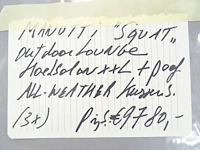 MANUTTI "SQUAT"
outdoor Lounge
Hoeksalon XXL + poef
ALL-WEATHER kussens.
(3x) Prijs €9780,-